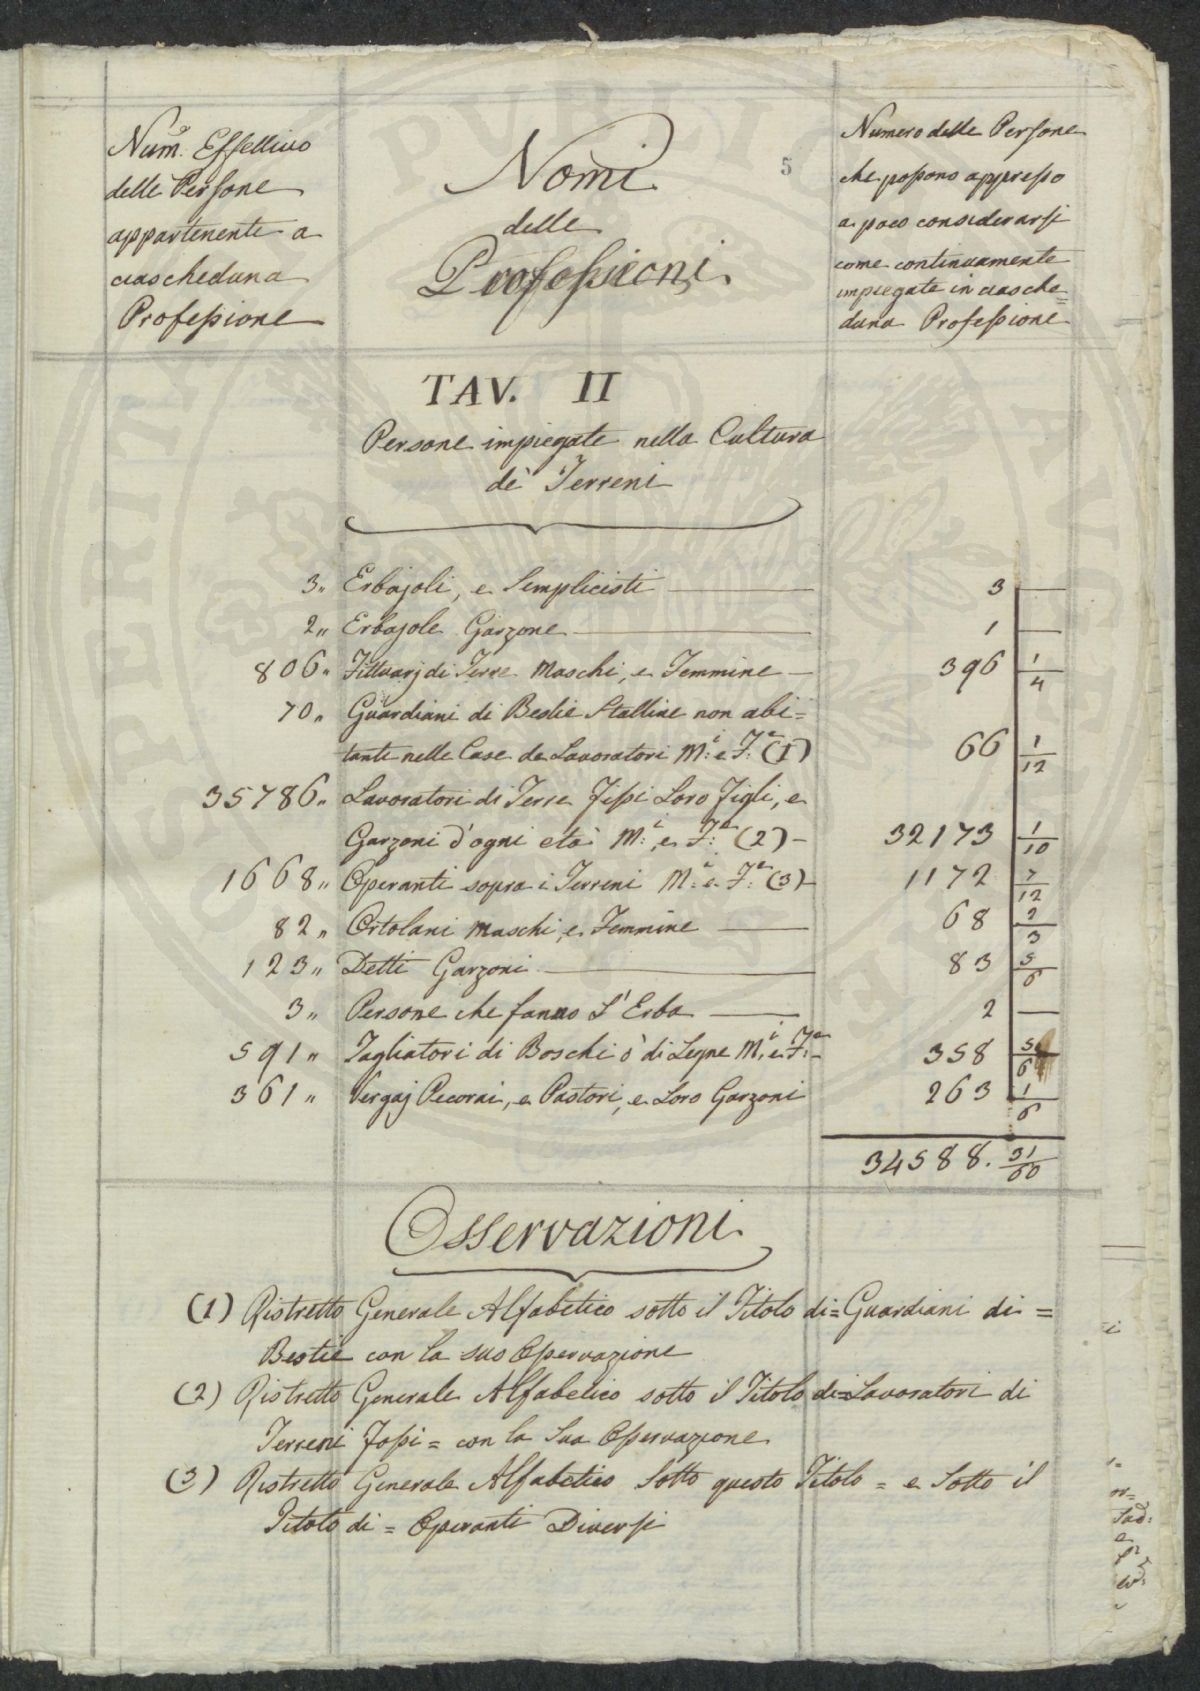 Num.º Effettivo
delle Persone
appartenente a
ciascheduna
Professione
Nomi
delle
Professioni
5
Numero delle Persone
che possono appresso
a poco considerarsi
come continuamente
impiegate in ciasche=
duna Professione
TAV. II
Persone impiegate nella Cultura
de' Terreni
3" Erbajoli, e Semplicisti — 3 —
2" Erbajole Garzone — 1 —
806" Fittuarj di Terre Maschi, e Femmine — 396 1/4
70" Guardiani di Bestie Stalline non abi=
tanti nelle Case de Lavoratori M:i e F:e (1) 66 1/12
35786" Lavoratori di Terre Fissi Loro Figli, e
Garzoni d'ogni età M:i, e F:e (2) — 32173 1/10
1668" Operanti sopra i Terreni M:i e F:e (3) — 1172 7/12
82" Ortolani Maschi, e Femmine — 68 2/3
123" Detti Garzoni — 83 5/6
3" Persone che fanno L'Erba — 2 —
591" Tagliatori di Boschi ò di Legne M:i e F:e — 358 5/6
361" Vergaj Pecorai, e Pastori, e Loro Garzoni 263 1/6
34588. 31/60
Osservazioni
(1) Ristretto Generale Alfabetico sotto il Titolo di= Guardiani di=
Bestie con la sua Osservazione
(2) Ristretto Generale Alfabetico sotto il Titolo di= Lavoratori di
Terreni Fossi = con la Sua Osservazione
(3) Ristretto Generale Alfabetico Sotto questo Titolo = e Sotto il
Titolo di = Operanti Diversi